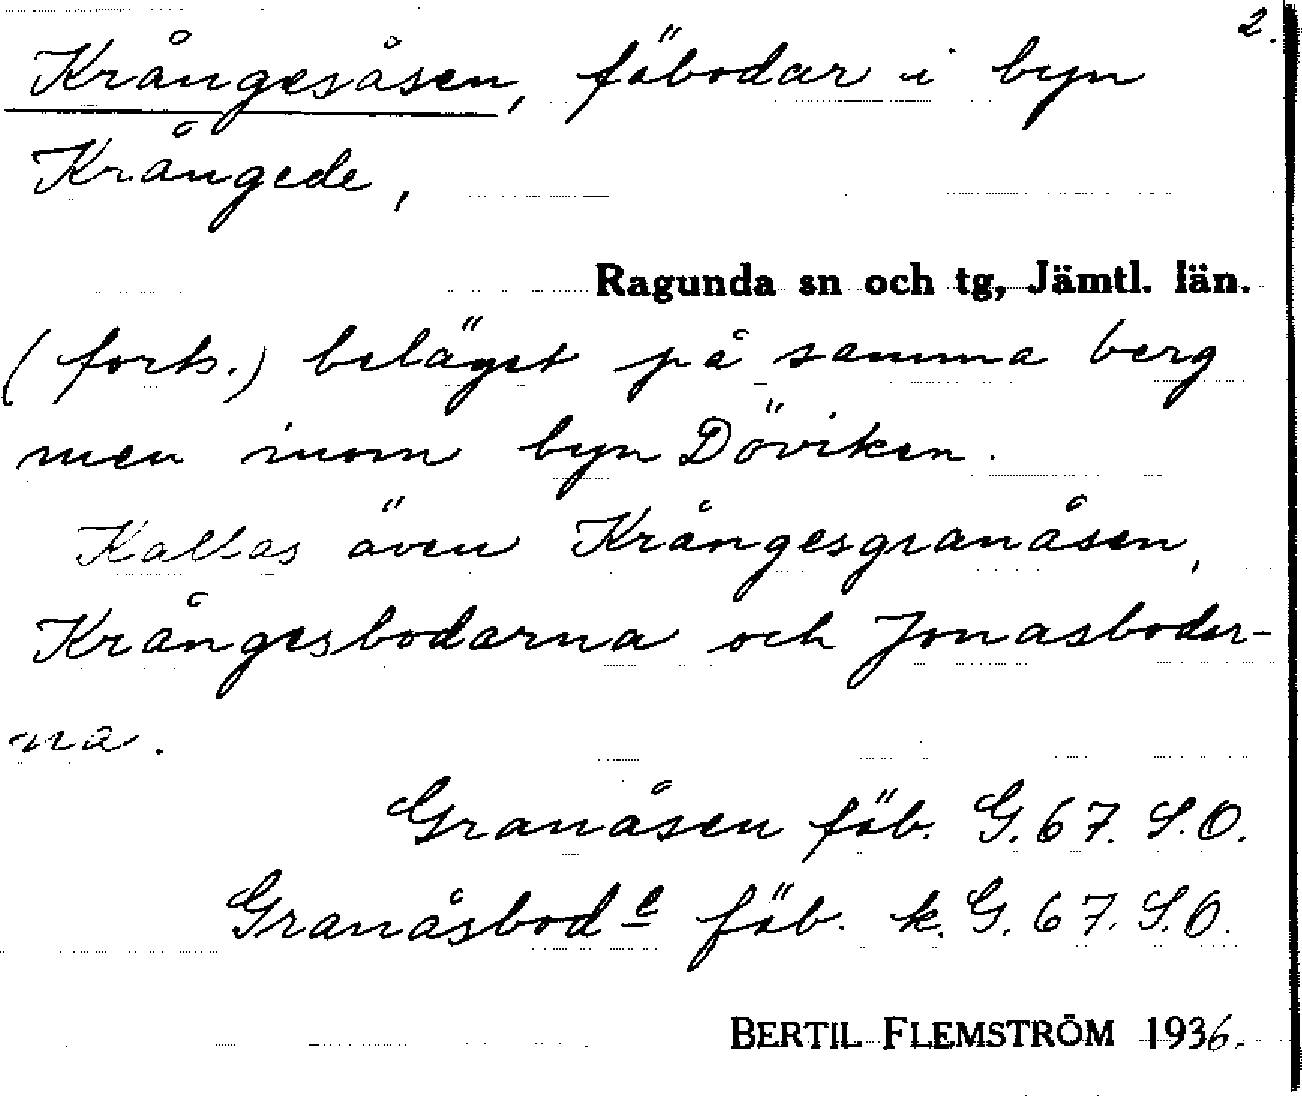 2.
Krångesåsen, fäbodar i byn
Krångede,
Ragunda sn och tg, Jämtl. län.
(forts.) beläget på samma berg
men inom byn Döviken.
Kallas även Krångesgranåsen,
Krångesbodarna och Jonasbodar-
na.
Granåsen fäb. G. 67. S.O.
Granåsbod e fäb. k. G. 67. S.O.
BERTIL FLEMSTRÖM 1936.